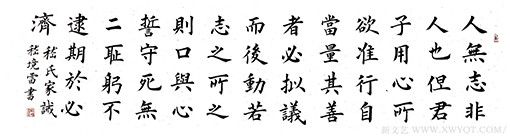 人無志非
人也但君
子用心所
欲准行自
當量其善
者必拟議
而後動若
志之所之
則口與心
誓守死無
二耻躬不
逮期於必
濟
嵇氏家誡
嵇境雷書
新文艺 WWW.XWYQT.COM